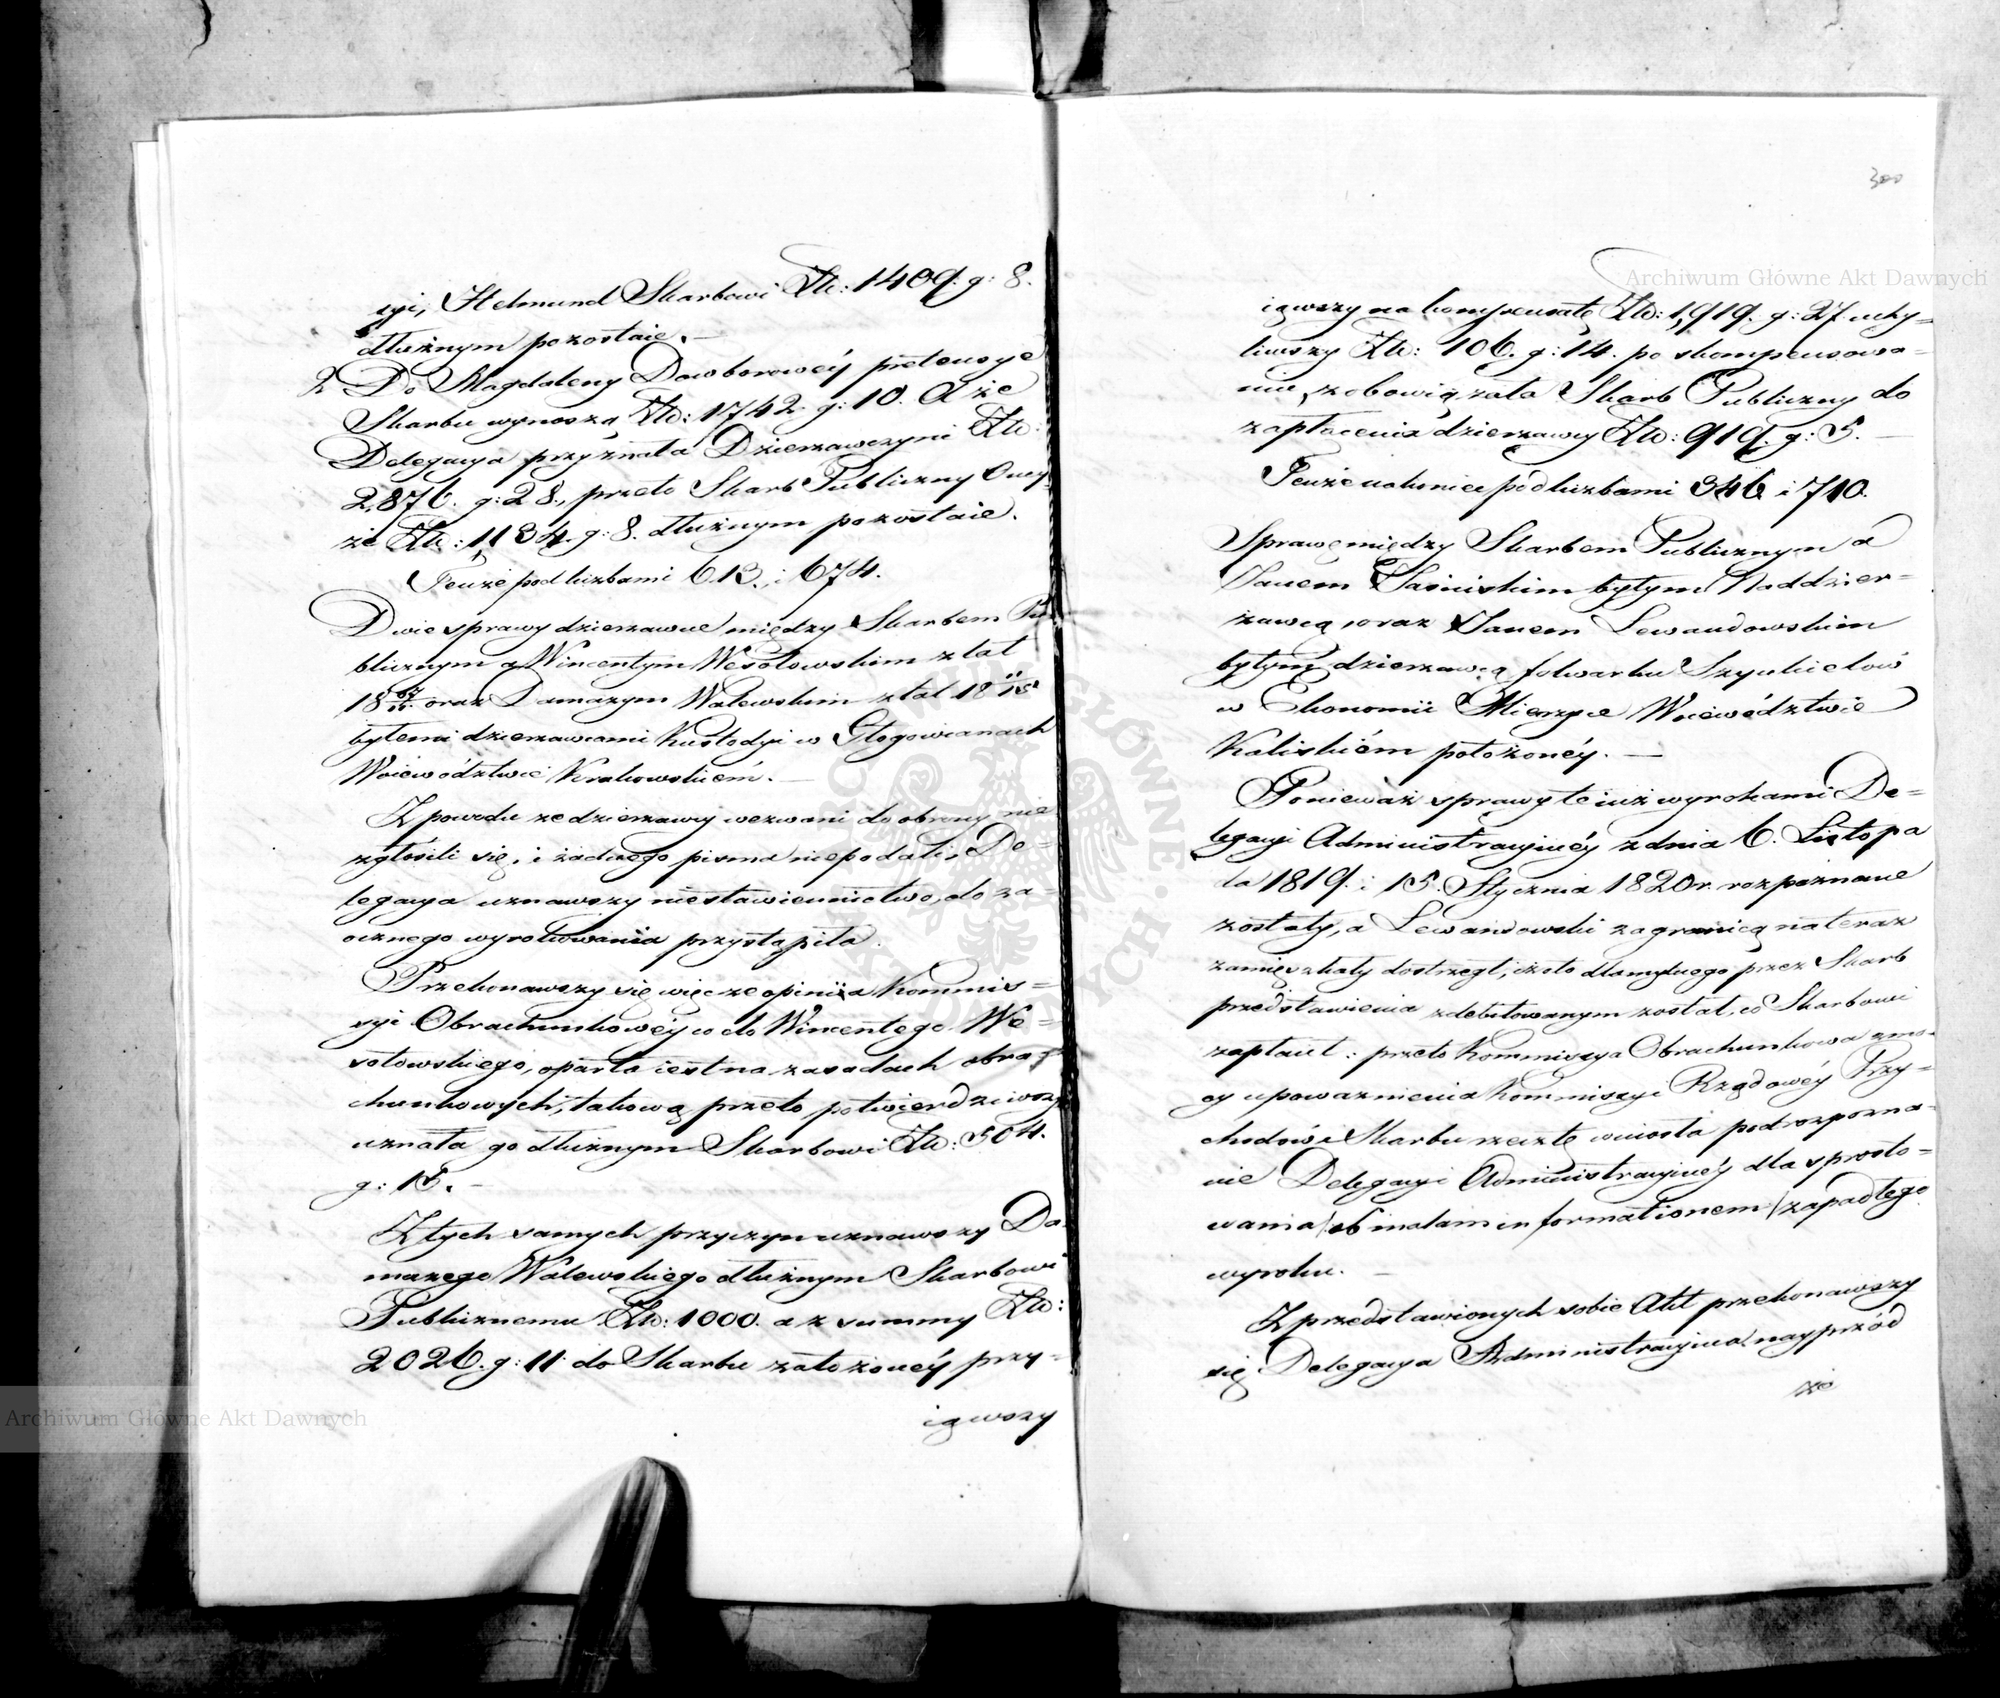 syi, Helmund Skarbowi Złt: 1409. g: 8.
dłużnym pozostaie. —
2 Do Magdaleny Dowborowéy pretensye
Skarbu wynoszą Złt: 1742. g: 10. A że
Delegacya przyznała Dzierzawczyni Złt:
2,876. g: 28., przeto Skarb Publiczny Oney
że Złt: 1,134. g: 8. dłużnym pozostaie.
Teuże pod liczbami 613. i 674.
Dwie sprawy dzierzawne między Skarbem Pu
blicznym a Wincentym Wesołowskim z lat
18 oraz Damazym Walewskim z lat 18
byłemi dzierzawcami Kustodyi w Głogowianach
Woiewództwie Krakowskiém. —
Z powodu że dzierzawcy wezwani do obrony nie
zgłosili się, i żadnego pisma niepodali, De=
legacya uznawszy niestawiennictwo, do za=
ocznego wyrokowania przystąpiła.
Przekonawszy się więc że opiniia Kommis=
syi Obrachunkowéy co do Wincentego We=
sołowskiego, oparta iest na zasadach obra=
chunkowych, takową przeto potwierdziwszy
uznała go dłużnym Skarbowi Złt: 504.
g: 15. —
Z tych samych przyczyn uznawszy Da
mazego Walewskiego dłużnym Skarbowi
Publicznemu Złt: 1000. a z summy Złt:
2026. g: 11 do Skarbu załozonéy przy=
iąwszy
300
Archiwum Główne Akt Dawnych
iąwszy na kompensatę Złt: 1,919. g: 27 uchy=
liwszy Złt: 106. g: 14. po skompensowa=
niu, zobowiązała Skarb Publiczny do
zapłacenia dzierzawcy Złt: 919. g: 5. —
Teuże nakoniec pod liczbami 346 i 710.
Sprawę między Skarbem Publicznym a
Janem Jasińskim byłym Naddzier=
zawcą, oraz Janem Lewandowskim
byłym dzierzawcą folwarku Szynkielów
w Ekonomii Mierzyce Woiewództwie
Kaliskiém położonéy. —
Ponieważ sprawy te iuż wyrokami De=
legacyi Administracyinéy z dnia 6. Listopa
da 1819. i 15. Stycznia 1820 r. rozpoznane
zostały, a Lewandowski zagranicą na teraz
zamięszkały dostrzegł, iż z omylnego przez Skarb
przedstawienia zdebitowanym został, co Skarbowi
zapłacił: przeto Kommissya Obrachunkowa z mo=
cy upoważnienia Kommissyi Rządowéy Przy=
chodów i Skarbu rzecz tę wniosła pod rozpozna=
nie Delegacyi Administracyinéy dla sprosto=
wania /: ob malam informationem :/ zapadłego
wyroku. —
Z przedstawionych sobie Akt przekonawszy
się Delegacya Administracyina, nayprzód
że
Archiwum Główne Akt Dawnych